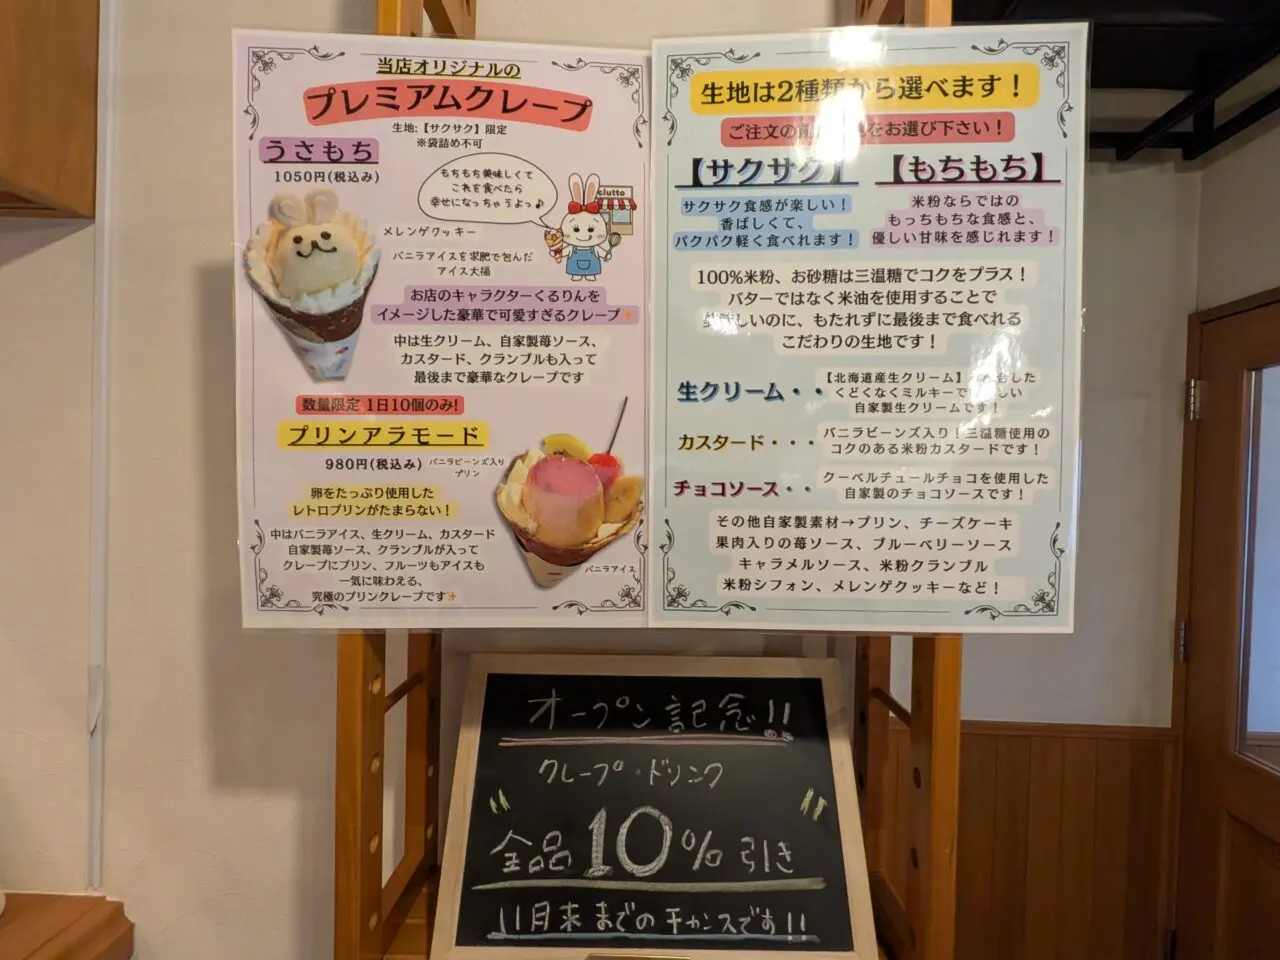 当店オリジナルの
プレミアムクレープ
生地:【サクサク】限定
※袋詰め不可
うさもち
1050円(税込み)
もちもち美味しくて
これを食べたら
幸せになっちゃうよっ♪
clutto
メレンゲクッキー
バニラアイスを求肥で包んだ
アイス大福
お店のキャラクターくるりんを
イメージした豪華で可愛すぎるクレープ✨
中は生クリーム、自家製苺ソース、
カスタード、クランブルも入って
最後まで豪華なクレープです
数量限定 1日10個のみ!
プリンアラモード
980円(税込み)
バニラビーンズ入り
プリン
卵をたっぷり使用した
レトロプリンがたまらない!
中はバニラアイス、生クリーム、カスタード
自家製苺ソース、クランブルが入って
クレープにプリン、フルーツもアイスも
一気に味わえる、
究極のプリンクレープです✨
バニラアイス
生地は2種類から選べます!
ご注文の前 をお選び下さい!
【サクサク】
サクサク食感が楽しい!
香ばしくて、
パクパク軽く食べれます!
【もちもち】
米粉ならではの
もっちもちな食感と、
優しい甘味を感じれます!
100%米粉、お砂糖は三温糖でコクをプラス!
バターではなく米油を使用することで
美味しいのに、もたれずに最後まで食べれる
こだわりの生地です!
生クリーム・・
【北海道産生クリーム】 した
くどくなくミルキーで しい
自家製生クリームです!
カスタード・・・
バニラビーンズ入り!三温糖使用の
コクのある米粉カスタードです!
チョコソース・・
クーベルチュールチョコを使用した
自家製のチョコソースです!
その他自家製素材→プリン、チーズケーキ
果肉入りの苺ソース、ブルーベリーソース
キャラメルソース、米粉クランブル
米粉シフォン、メレンゲクッキーなど!
オープン記念!!
クレープ・ドリンク
全品10%引き
11月末までのチャンスです!!